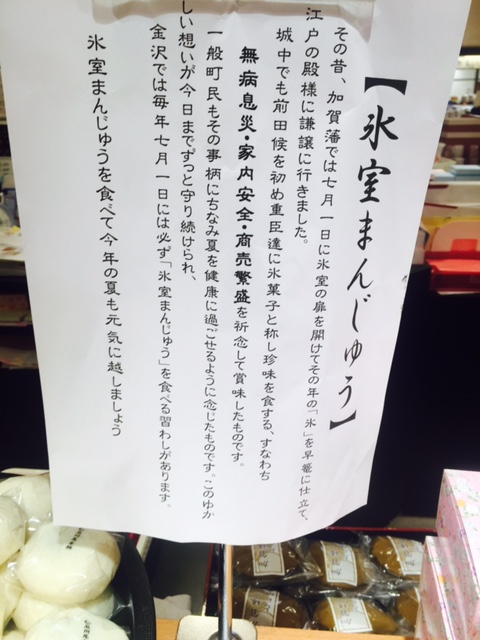 【氷室まんじゅう】
その昔、加賀藩では七月一日に氷室の扉を開けてその年の「氷」を早篭に仕立て、
江戸の殿様に謙譲に行きました。
城中でも前田候を初め重臣達に氷菓子と称し珍味を食する、すなわち
無病息災・家内安全・商売繁盛を祈念して賞味したものです。
一般町民もその事柄にちなみ夏を健康に過ごせるように念じたものです。このゆか
しい想いが今日までずっと守り続けられ、
金沢では毎年七月一日には必ず「氷室まんじゅう」を食べる習わしがあります。
氷室まんじゅうを食べて今年の夏も元気に越しましょう